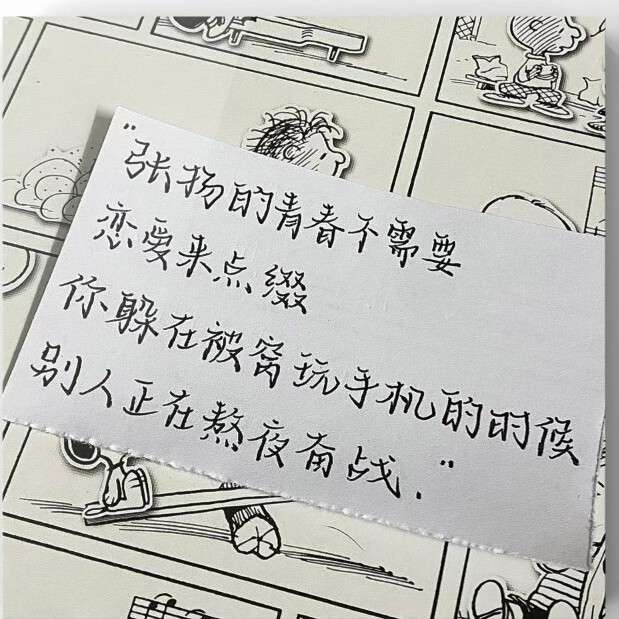 "张扬的青春不需要
恋爱来点缀
你躲在被窝玩手机的时候
别人正在熬夜奋战."